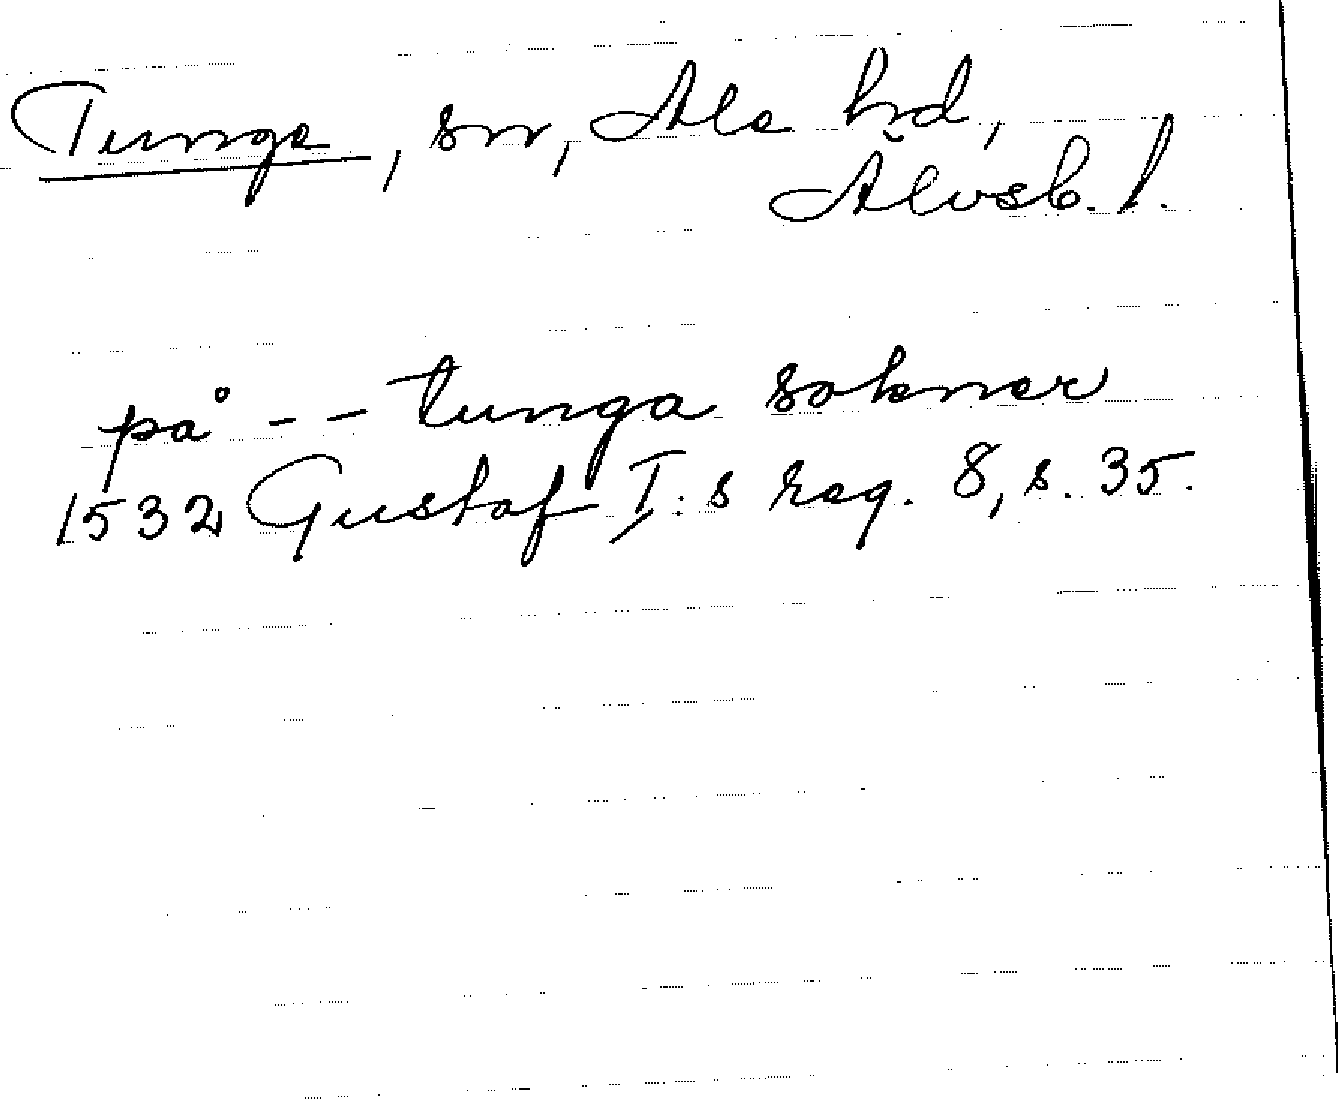 Tunge, sn, Ale hd,
Älvsb. l.
på -- tunga soknar
1532 Gustaf I:s reg. 8, s. 35.